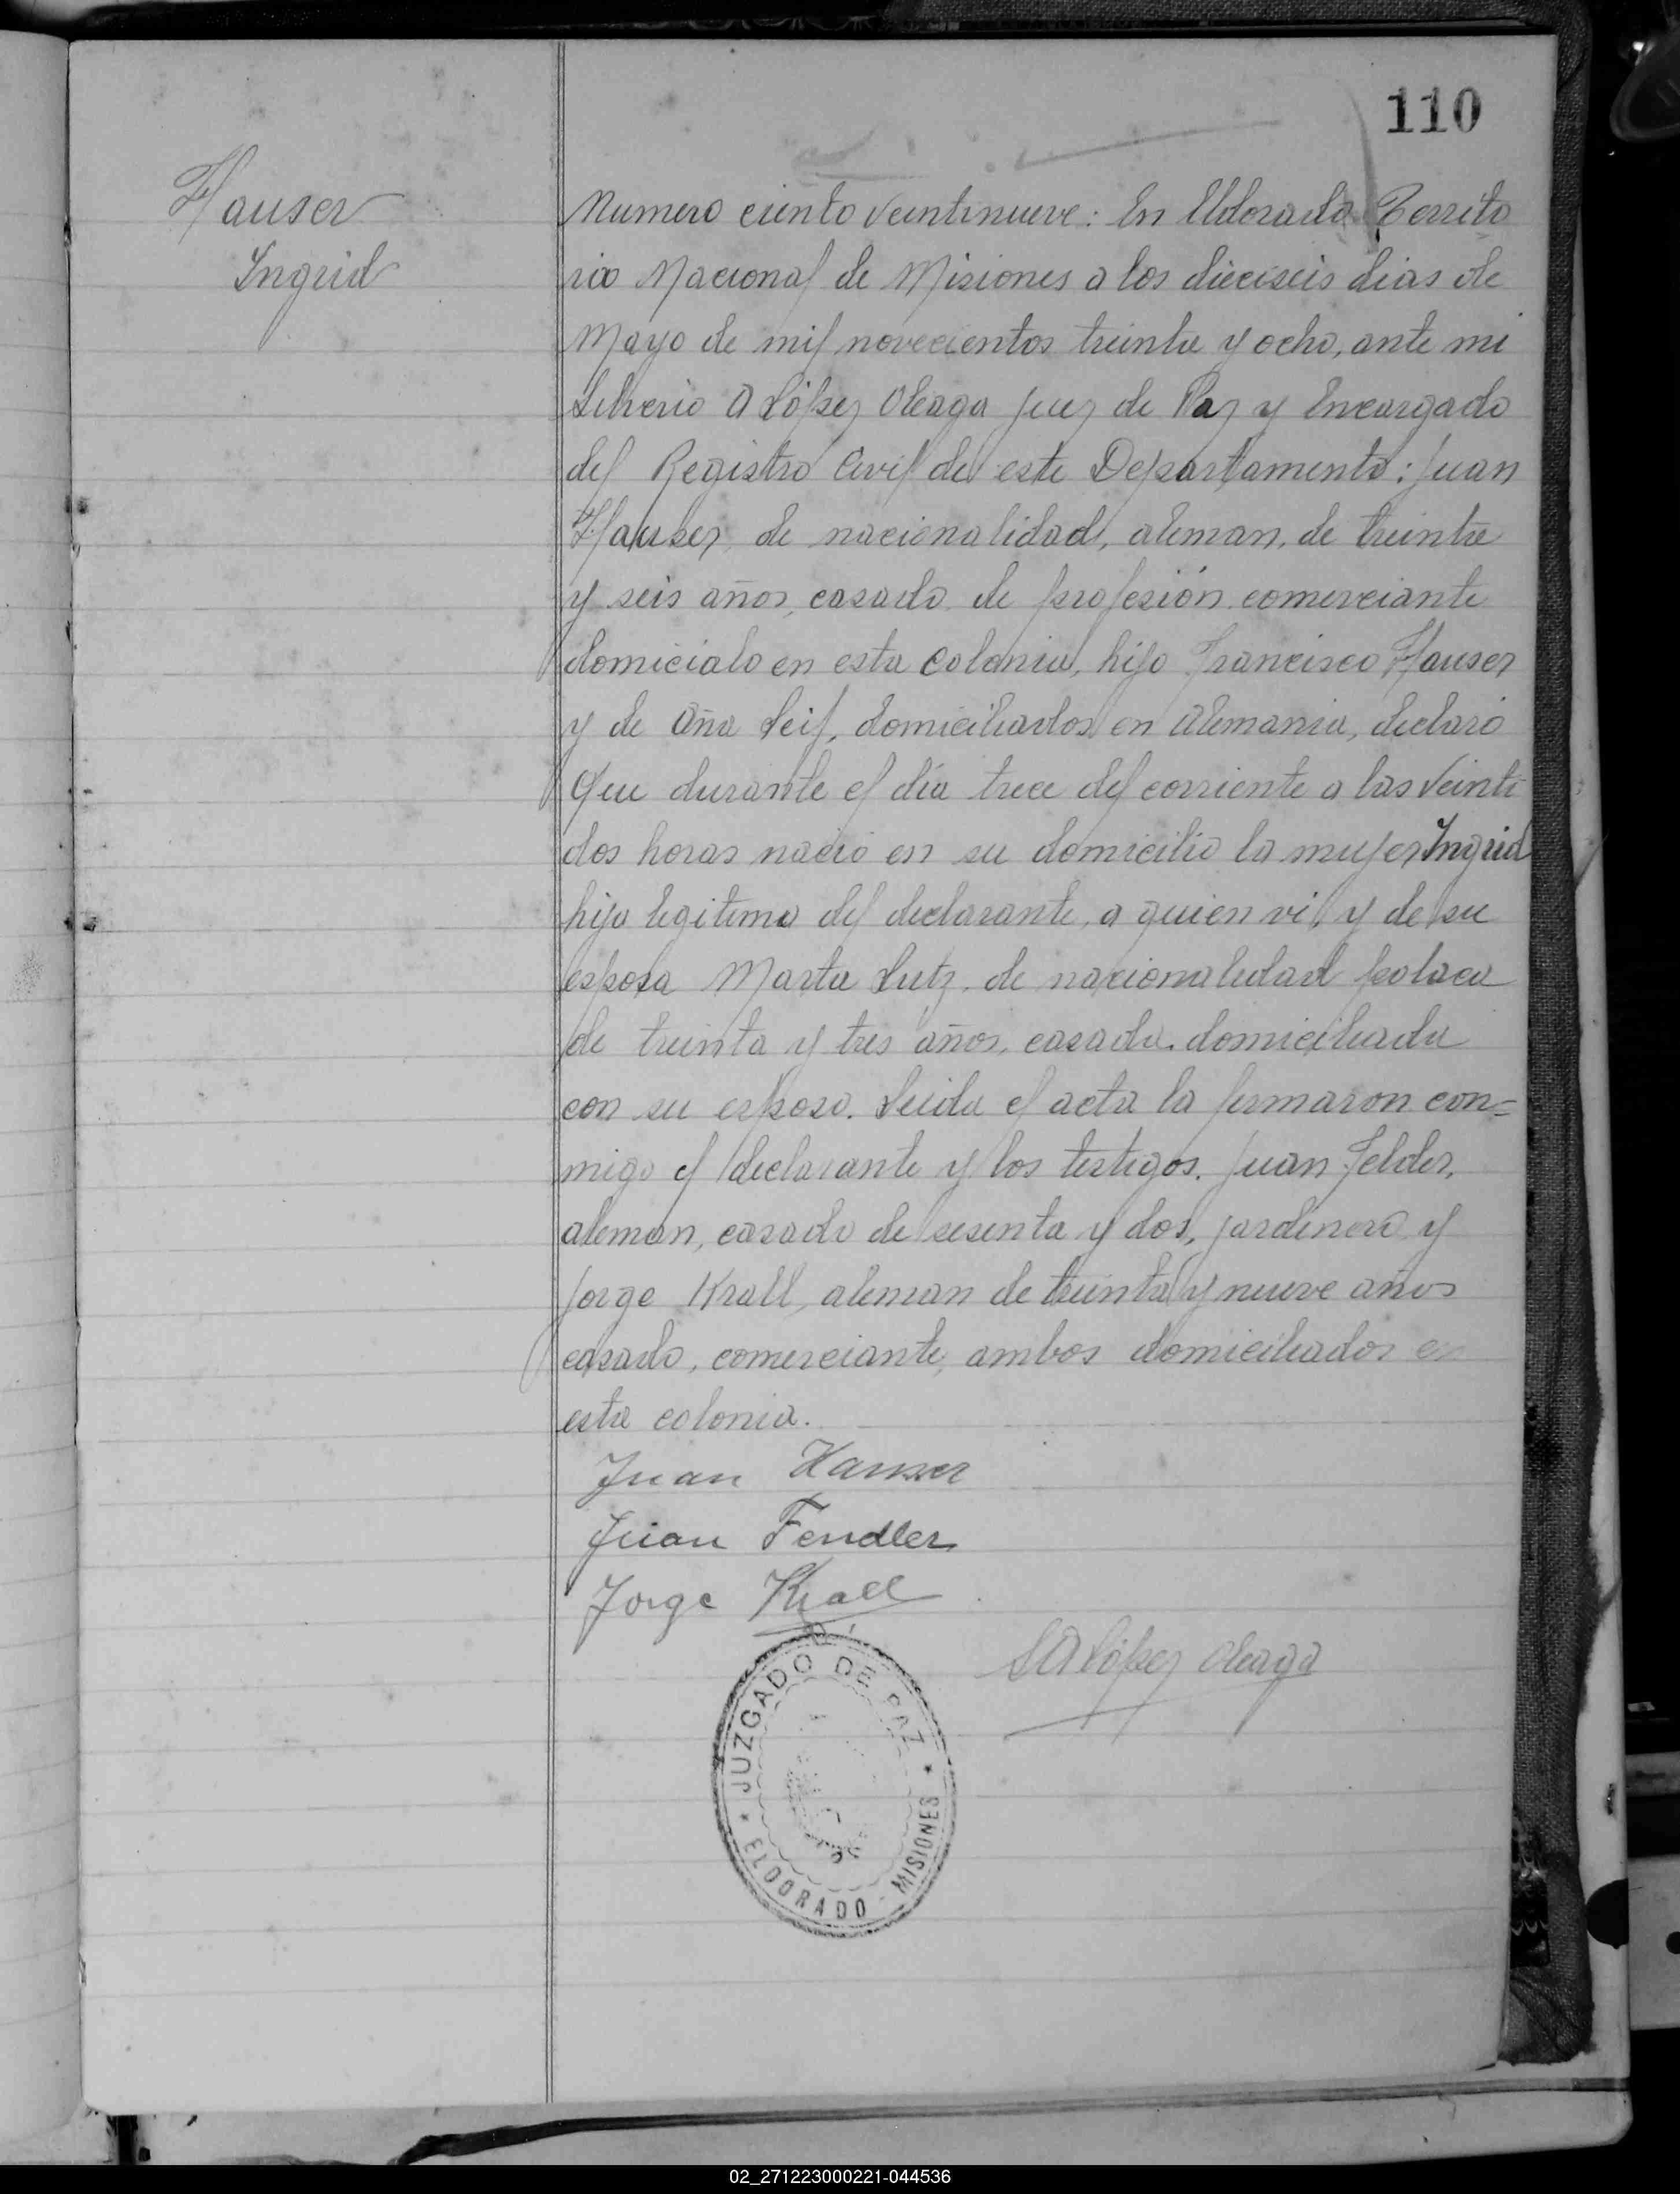 110
Hauser
Ingrid
Numero ciento veintinueve: En Eldorado Territo
rio Nacional de Misiones a los dieciseis dias de
Mayo de mil novecientos treinta y ocho, ante mi
Silverio A López Oleaga Juez de Paz y Encargado
del Registro Civil de este Departamento: Juan
Hauser, de nacionalidad, aleman, de treinta
y seis años, casado de profesión comerciante
domicialo en esta colonia, hijo Francisco Hauser
y de Ana Seif, domiciliados en Alemania, declaró
Que durante el día trece del corriente a las veinti
dos horas nació en su domicilio la mujer Ingrid
hija legitima del declarante, a quien vi, y de su
esposa Marta Lutz, de nacionalidad polaca
de treinta y tres años, casada, domiciliada
con su esposo. Leida el acta la firmaron con=
migo el declarante y los testigos. Juan Felder,
aleman, casado de sesenta y dos, jardinero y
Jorge Krall, aleman de treinta y nueve años
casado, comerciante, ambos domiciliados en
esta colonia.
Juan Hauser
Juan Fendler
Jorge Krall
SA López Oleaga
JUZGADO DE PAZ
* ELDORADO - MISIONES *
02_271223000221-044536